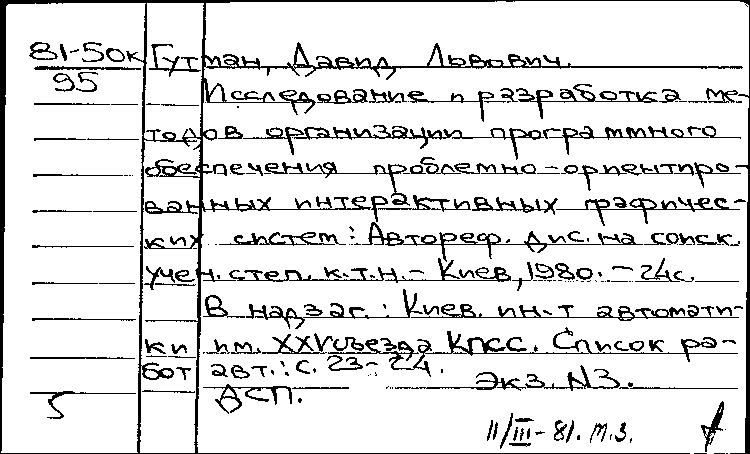 81-50к Гутман, Давид Львович.
95
Исследование и разработка ме-
тодов организации программного
обеспечения проблемно-ориентиро-
ванных интерактивных графичес-
ких систем: Автореф. дис. на соиск.
учен. степ. к.т.н. - Киев, 1980. - 24с.
В надзаг.: Киев. ин-т автомати-
ки им. XXV съезда КПСС. Список ра-
бот авт.: с. 23-24. Экз. N3.
5 ДСП.
11/III-81. м.з.